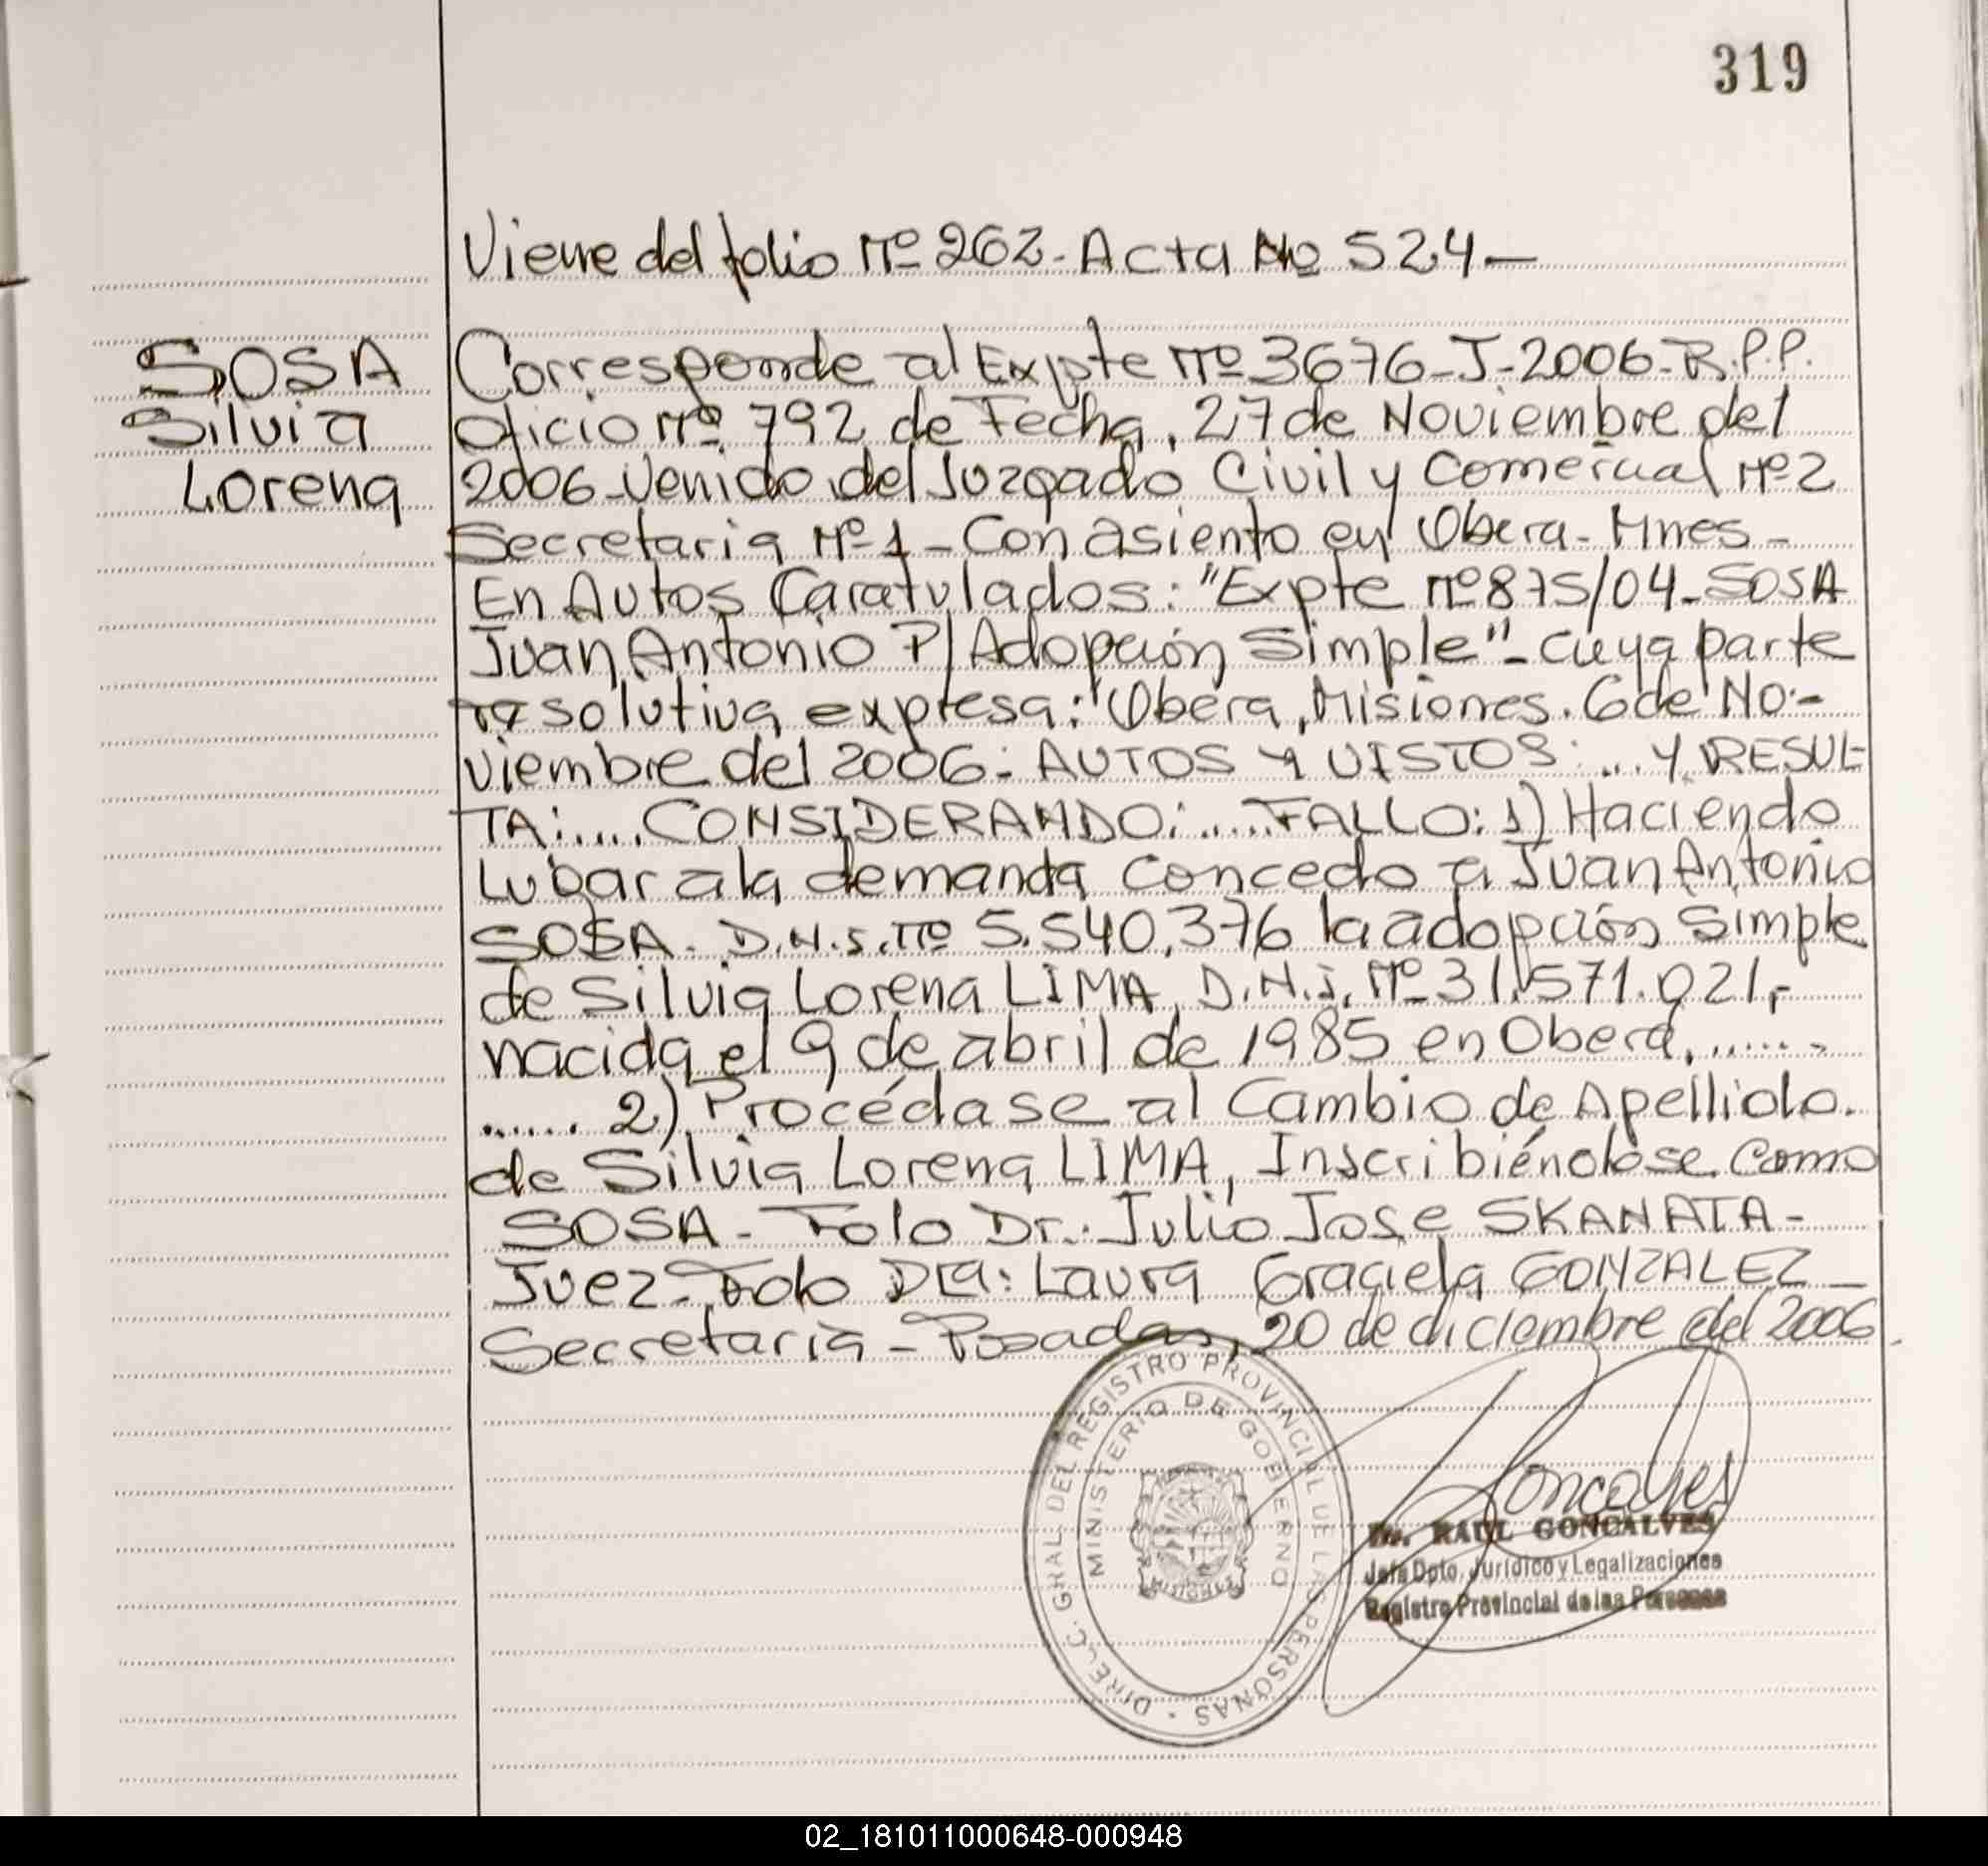 319
Viene del folio Nº 262 - Acta Nº 524 —
SOSA
Silvia
Lorena
Corresponde al Expte Nº 3676 - J - 2006 - R.P.P.
Oficio Nº 792 de Fecha, 27 de Noviembre del
2006 - Venido del Juzgado Civil y Comercial Nº 2
Secretaria Nº 1 - Con asiento en Obera - Mnes -
En Autos Caratulados: "Expte Nº 875/04 - SOSA
Juan Antonio P/ Adopción Simple" - cuya parte
resolutiva expresa: "Obera, Misiones. 6 de No-
viembre del 2006: AUTOS Y VISTOS: ... Y RESUL-
TA: .... CONSIDERANDO: .... FALLO: 1) Haciendo
Lugar a la demanda concedo a Juan Antonio
SOSA - D.N.I. Nº 5.540.376 la adopción Simple
de Silvia Lorena LIMA, D.N.I. Nº 31.571.021,-
nacida el 9 de abril de 1985 en Oberá, ......
...... 2) Procédase al Cambio de Apellido.
de Silvia Lorena LIMA, Inscribiéndose Como
SOSA - Fdo Dr. Julio Jose SKANATA -
Juez - Fdo Dra: Laura Graciela GONZALEZ -
Secretaria - Posadas, 20 de diciembre del 2006.
DIREC. GRAL. DEL REGISTRO PROVINCIAL DE LAS PERSONAS
MINISTERIO DE GOBIERNO
MISIONES
Goncalves
Dr. RAUL GONCALVES
Jefe Dpto. Jurídico y Legalizaciones
Registro Provincial de las Personas
02_181011000648-000948